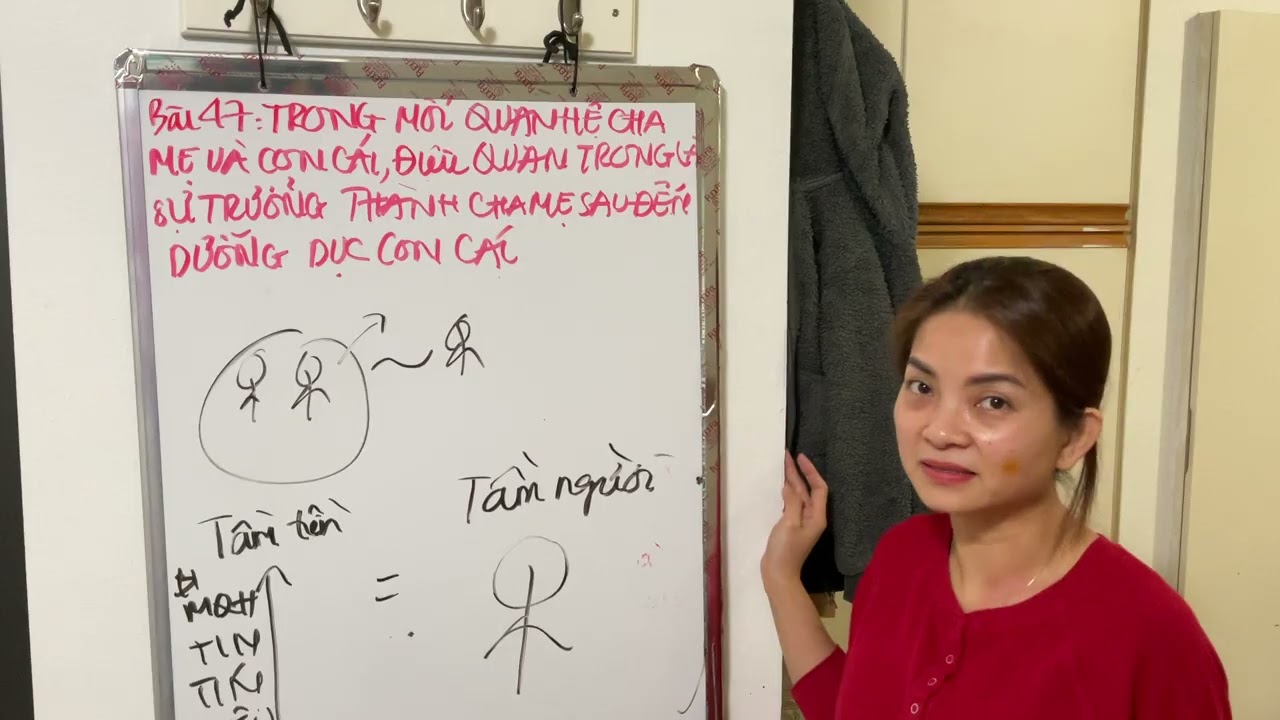 Bài 47: TRONG MỐI QUAN HỆ CHA
MẸ VÀ CON CÁI, ĐIỀU QUAN TRỌNG LÀ
SỰ TRƯỞNG THÀNH CHA MẸ SAU ĐẾN
DƯỠNG DỤC CON CÁI
Tầm người
Tầm tiền
MQH
=
TIN
TIẾN